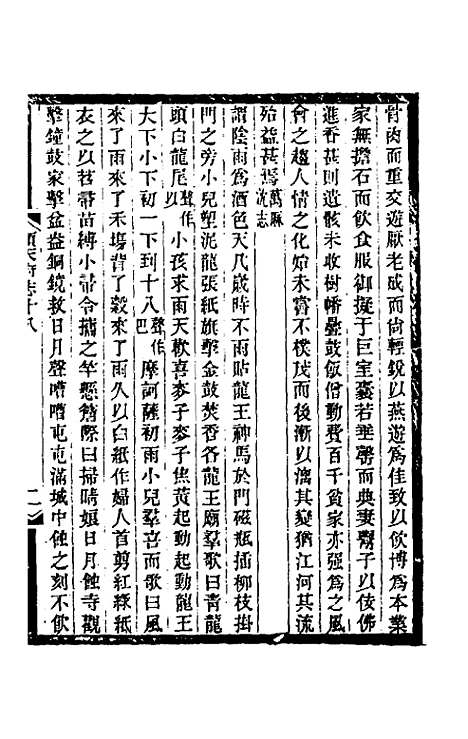 骨肉而重交遊厭老成而尚輕銳以燕遊為佳致以飲博為本業
家無擔石而飲食服御擬于巨室囊若垂罄而典妻鬻子以佞佛
進香甚則遺骸未收樹幡疊鼓飯僧動費百千貧家亦强為之風
會之趨人情之化始未嘗不樸茂而後漸以漓其變猶江河其流
殆益甚焉萬厯沈志
謂陰雨為酒色天凡歲時不雨貼龍王神馬於門磁瓶插柳枝掛
門之旁小兒塑泥龍張紙旗擊金鼓焚香各龍王廟羣歌曰青龍
頭白龍尾聲作以小孩求雨天歡喜麥子麥子焦黃起動起動龍王
大下小下初一下到十八聲作巴摩訶薩初雨小兒羣喜而歌曰風
來了雨來了禾場背了穀來了雨久以白紙作婦人首剪紅綠紙
衣之以苕帚苗縛小帚令攜之竿懸簷際曰掃晴娘日月蝕寺觀
擊鐘鼓家擊盆盎銅鏡救日月聲嘈嘈屯屯滿城中蝕之刻不飲
順天府志十八